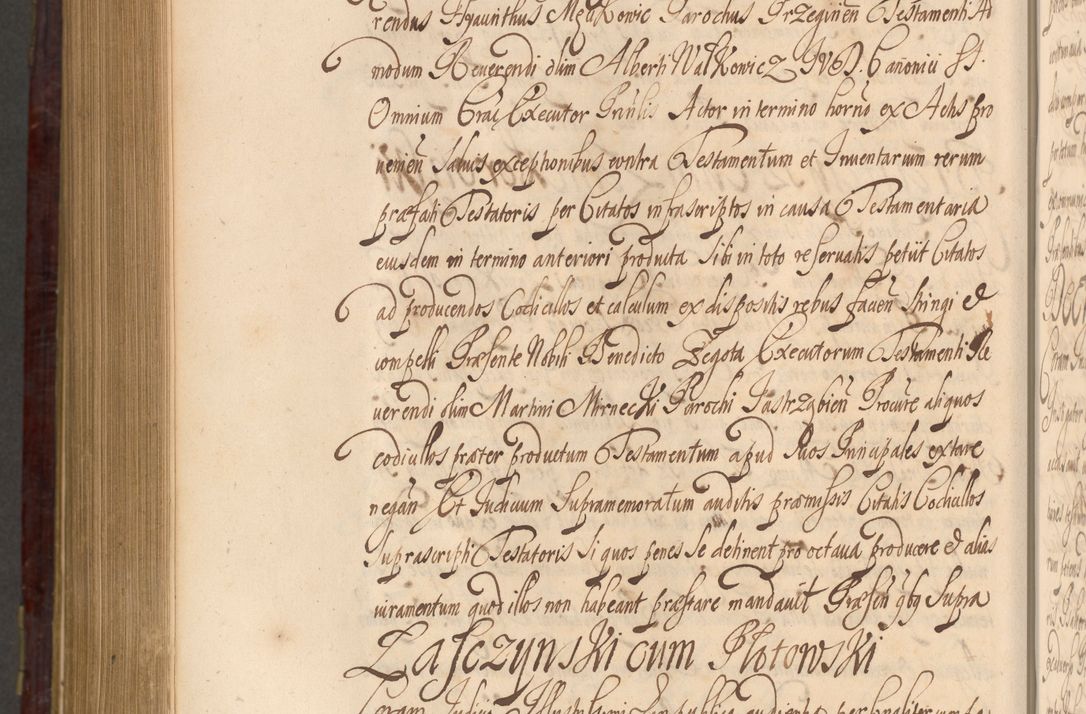 rendus Hyacinthus Parochus Testamenti Ad
modum Reverendi olim Alberti Walkowicz JVD. Canonici SS.
Omnium Crac Executor Prnlis Actor in termino horno ex Actis pro
venien Salvis exceptionibus contra Testamentum et Inventarum rerum
præfati Testatoris per Citatos infascriptos in causa Testamentaria
eiusdem in termino anteriori producta sibi in toto reservatis petiit Citatos
ad producendos Codicillos et calculum ex dispositis rebus facien stringi et
compelli Præsente Nobili Benedicto Zegota Executorum Testamenti Re
verendi olim Martini Mirnecki Parochi Jastrzgbien Procure aliquos
codicillos præter productum Testamentum apud Suos Principales extare
negan Et Judicium Supramemoratum auditis præmissis Citatis Codicillos
suprascripti Testatoris si quos penes se detinent pro octava producere et alias
iuramentum quod illos non habeant præstare mandavit Præsen qbg Supra
Zasczynski cum Plotowski
Coram Judice in publica audientia